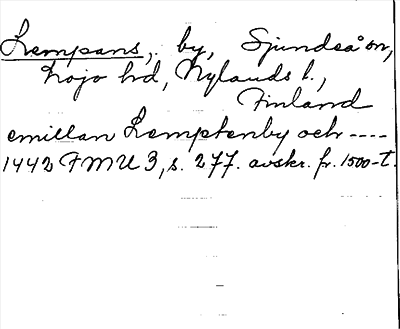 Lempans, by, Sjundeå sn,
Lojo hd, Nylands l.,
Finland
emillan Lemptenby och ----
1442 FMU 3, s. 277. avskr. fr. 1500-t.